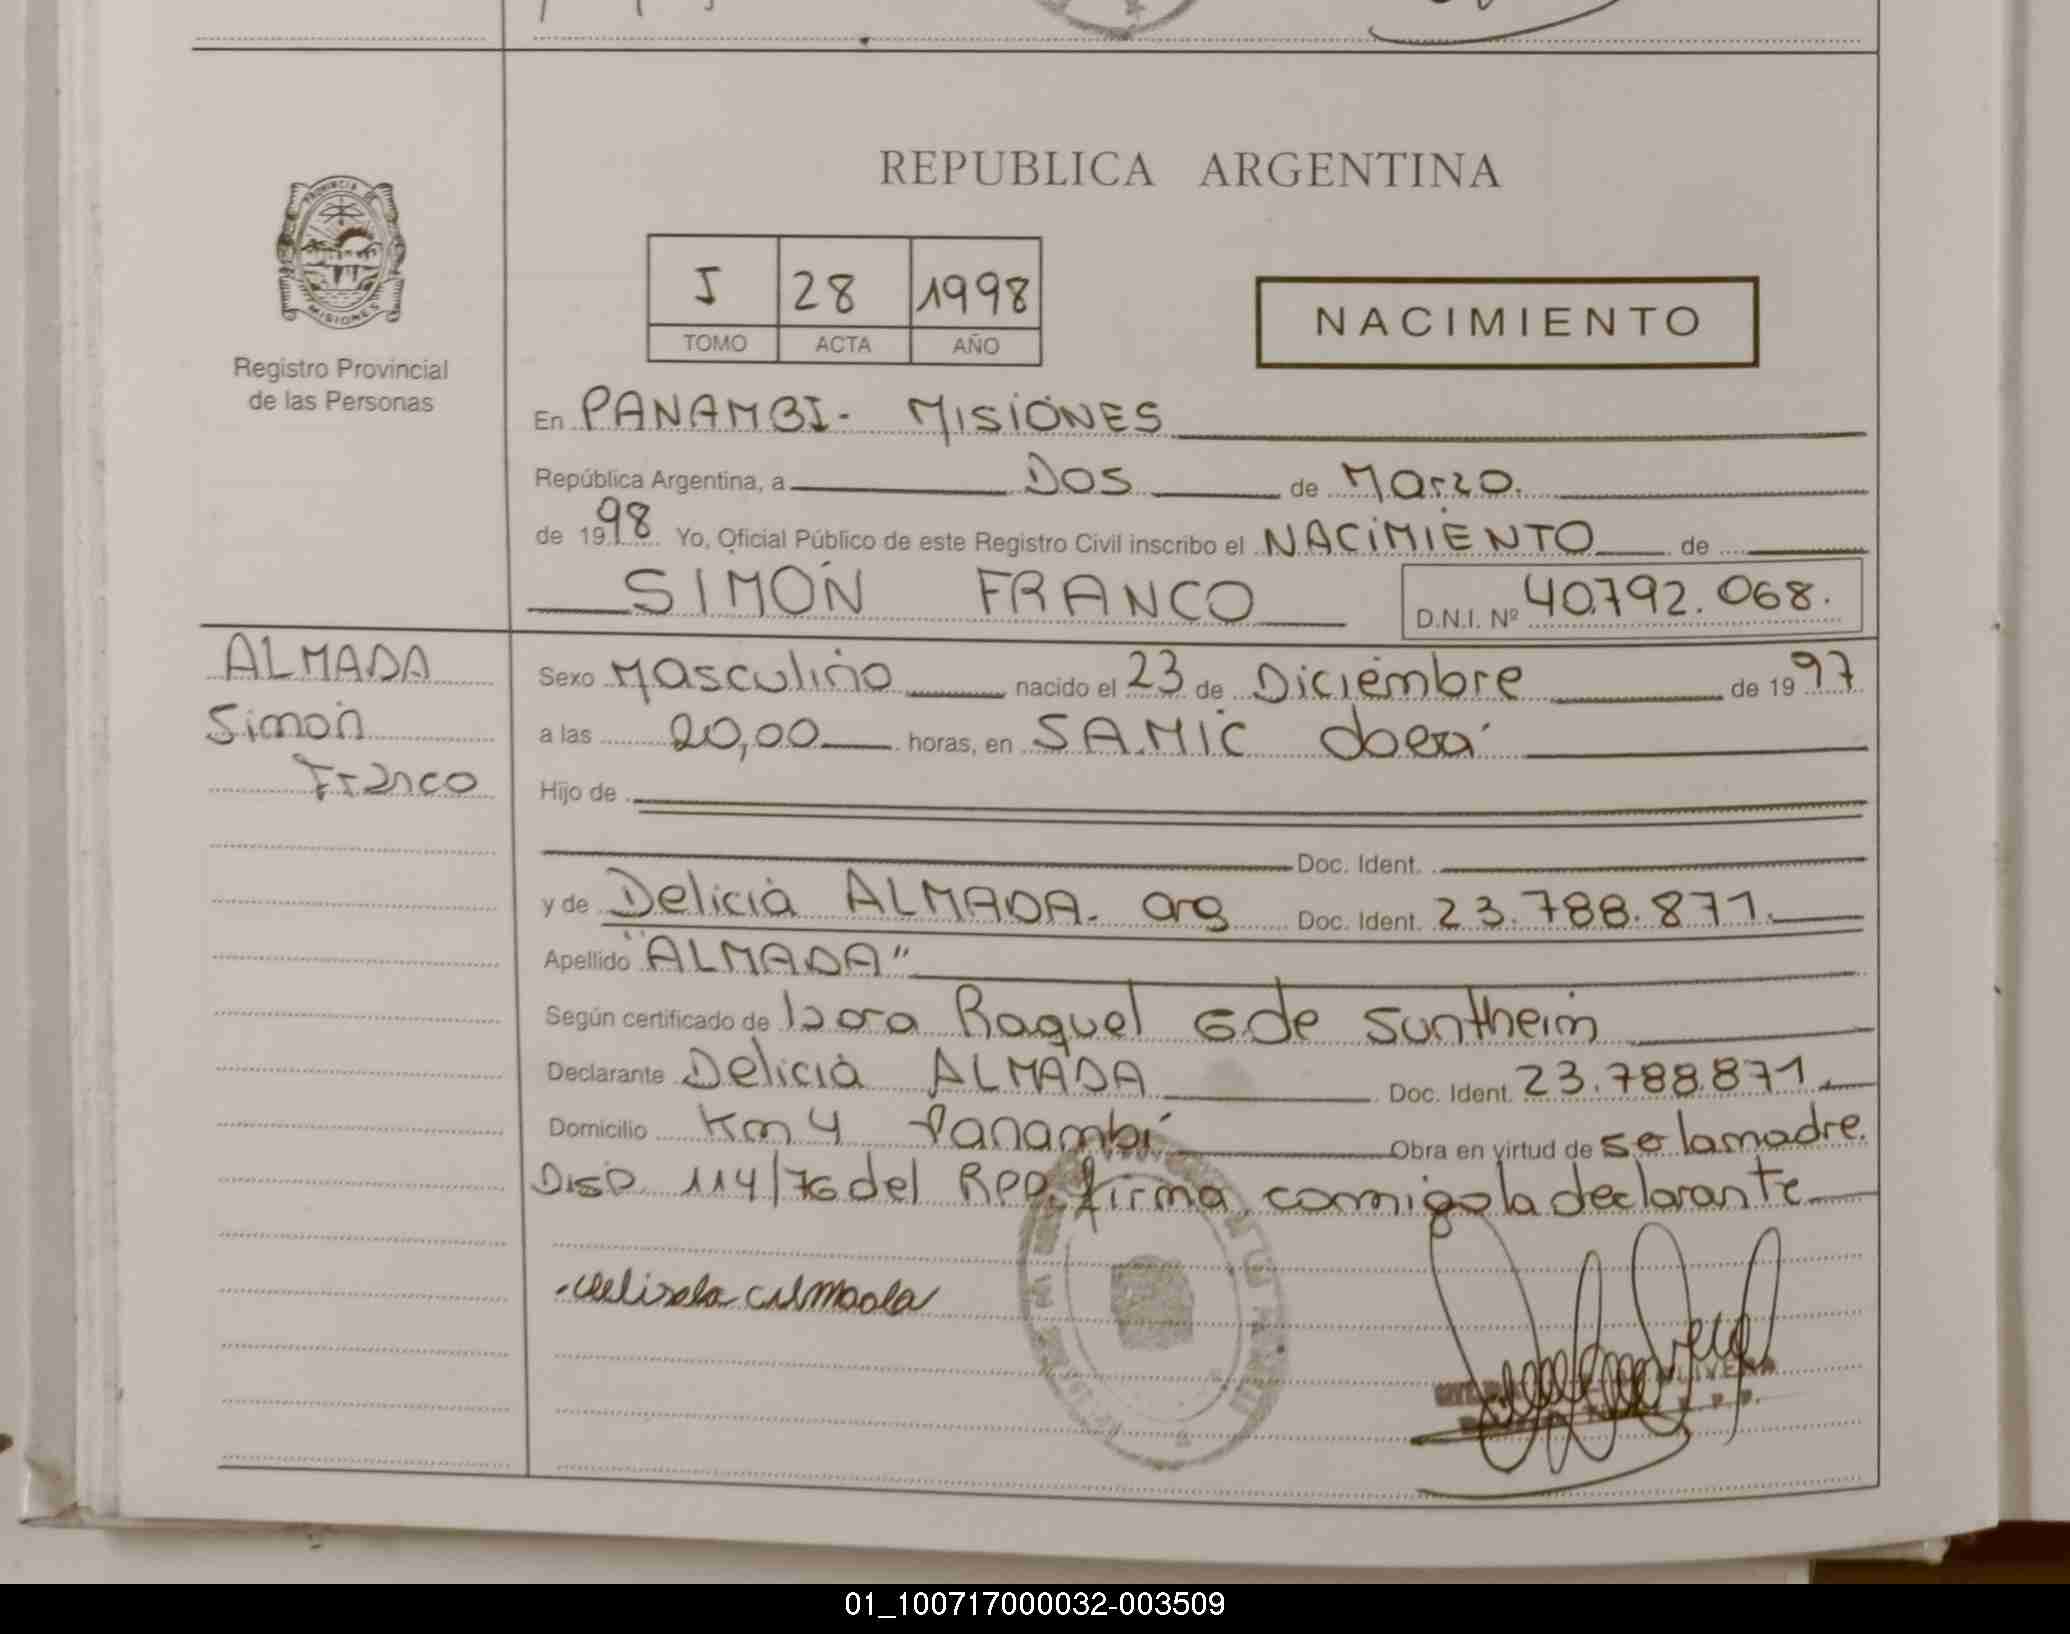 REPUBLICA ARGENTINA
PROVINCIA DE
MISIONES
Registro Provincial
de las Personas
I 28 1998
TOMO ACTA AÑO
NACIMIENTO
En PANAMBI- MISIONES
República Argentina, a DOS de Marzo.
de 1998 Yo, Oficial Público de este Registro Civil inscribo el NACIMIENTO de
SIMON FRANCO D.N.I. Nº 40.792.068.
ALMADA
Simon
Franco
Sexo Masculino nacido el 23 de Diciembre de 1997
a las 20,00 horas, en SAMIC oberá
Hijo de
Doc. Ident.
y de Delicia ALMADA- arg Doc. Ident. 23.788.871.
Apellido "ALMADA"
Según certificado de Raquel G de Suntheim
Declarante Delicia ALMADA Doc. Ident. 23.788.871.
Domicilio Km 4 Panambí Obra en virtud de se la madre.
Disp. 114/76 del RPP, firma conmigo la declarante
01_100717000032-003509